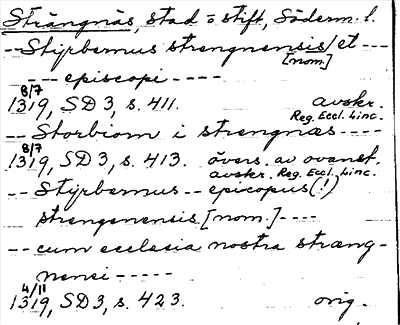 Strängnäs, stad o stift, Söderm. l.
-- Styrbernus strengnensis [nom] / et ----
---- episcopi ----
8/7 1319, SD 3, s. 411. avskr. Reg. Eccl. Linc.
-- Storbiorn i strengnæs ----
8/7 1319, SD 3, s. 413. övers. av ovanst. avskr. Reg. Eccl. Linc.
-- Styrbernus -- epicopus (!)
strengenensis [nom.] ----
-- cum ecclesia nostra stræng-
nensi -----
4/11 1319, SD 3, s. 423. orig.